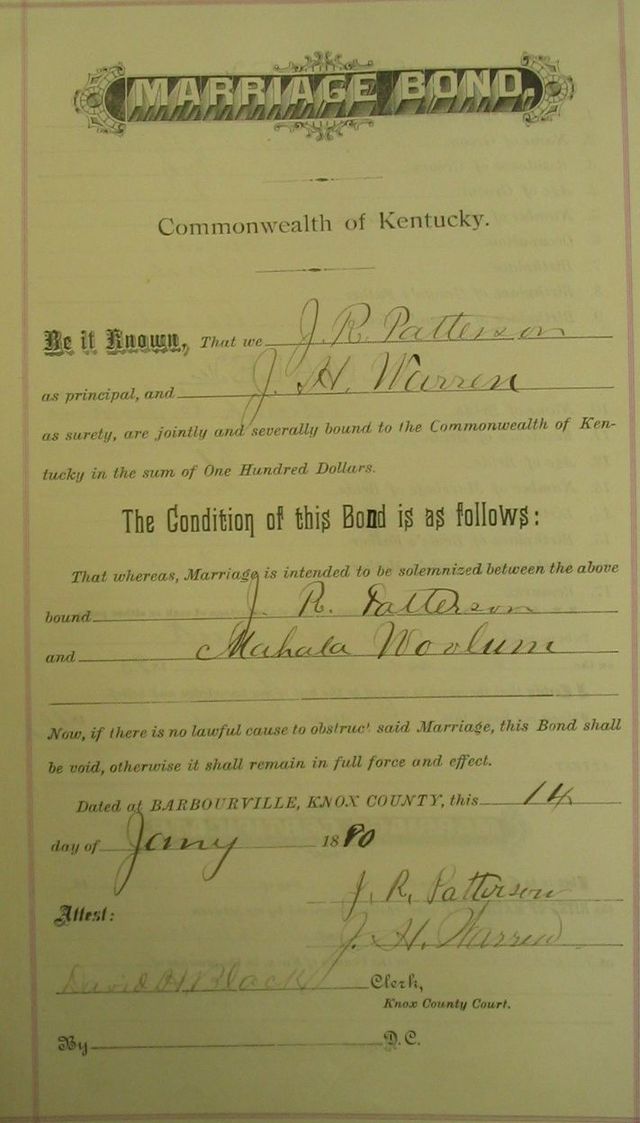 MARRIAGE BOND.
Commonwealth of Kentucky.
Be it Known, That we J. R. Patterson
as principal, and J. H. Warren
as surety, are jointly and severally bound to the Commonwealth of Ken-
tucky in the sum of One Hundred Dollars.
The Condition of this Bond is as follows:
That whereas, Marriage is intended to be solemnized between the above
bound J. R. Patterson
and Mahala Woolum
Now, if there is no lawful cause to obstruct said Marriage, this Bond shall
be void, otherwise it shall remain in full force and effect.
Dated at BARBOURVILLE, KNOX COUNTY, this 14
day of Jany 1890
J. R. Patterson
Attest:
J. H. Warren
David H Black Clerk,
Knox County Court.
By D. C.